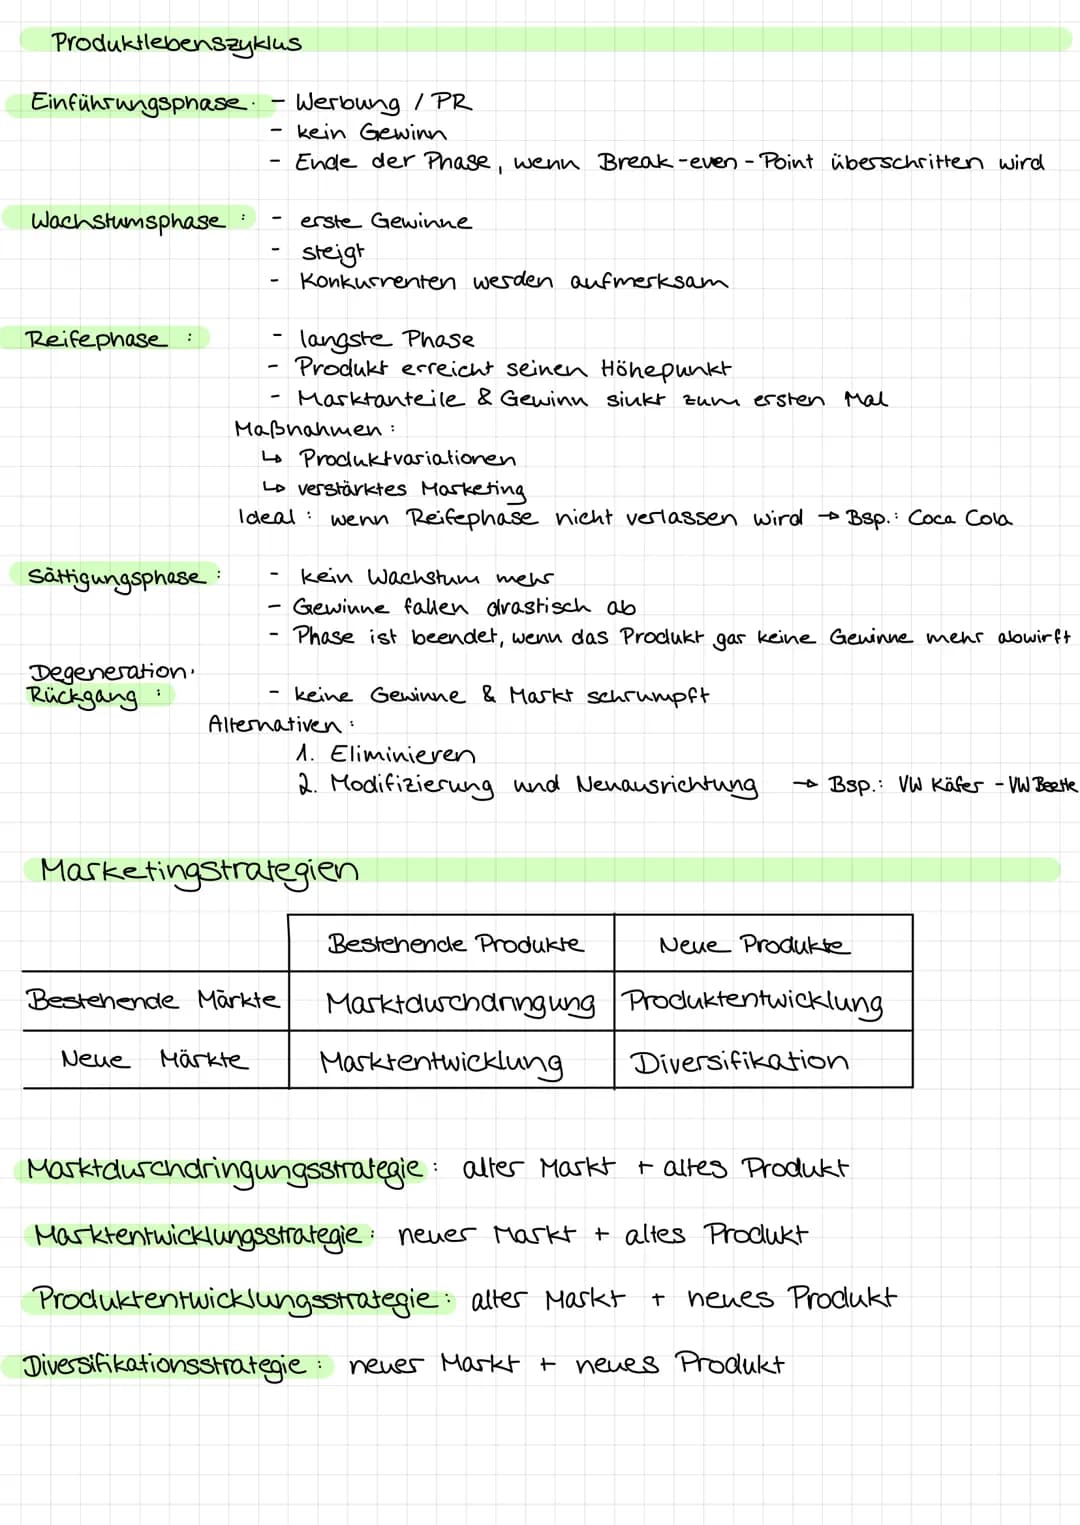 Produktlebenszyklus
Einführungsphase: - Werbung / PR
- kein Gewinn
- Ende der Phase, wenn Break-even-Point überschritten wird
Wachstumsphase : - erste Gewinne
- steigt
- Konkurrenten werden aufmerksam
Reifephase : - langste Phase
- Produkt erreicht seinen Höhepunkt
- Marktanteile & Gewinn sinkt zum ersten Mal
Maßnahmen :
↳ Produktvariationen
↳ verstärktes Marketing
Ideal : wenn Reifephase nicht verlassen wird → Bsp.: Coca Cola
Sättigungsphase : - kein Wachstum mehr
- Gewinne fallen drastisch ab
- Phase ist beendet, wenn das Produkt gar keine Gewinne mehr abwirft
Degeneration.
Rückgang : - keine Gewinne & Markt schrumpft
Alternativen :
1. Eliminieren
2. Modifizierung und Neuausrichtung → Bsp.: VW Käfer - VW Beetle
Marketingstrategien
Bestehende Produkte Neue Produkte
Bestehende Märkte Marktdurchdringung Produktentwicklung
Neue Märkte Marktentwicklung Diversifikation
Marktdurchdringungsstrategie : alter Markt + altes Produkt
Marktentwicklungsstrategie : neuer Markt + altes Produkt
Produktentwicklungsstrategie : alter Markt + neues Produkt
Diversifikationsstrategie : neuer Markt + neues Produkt